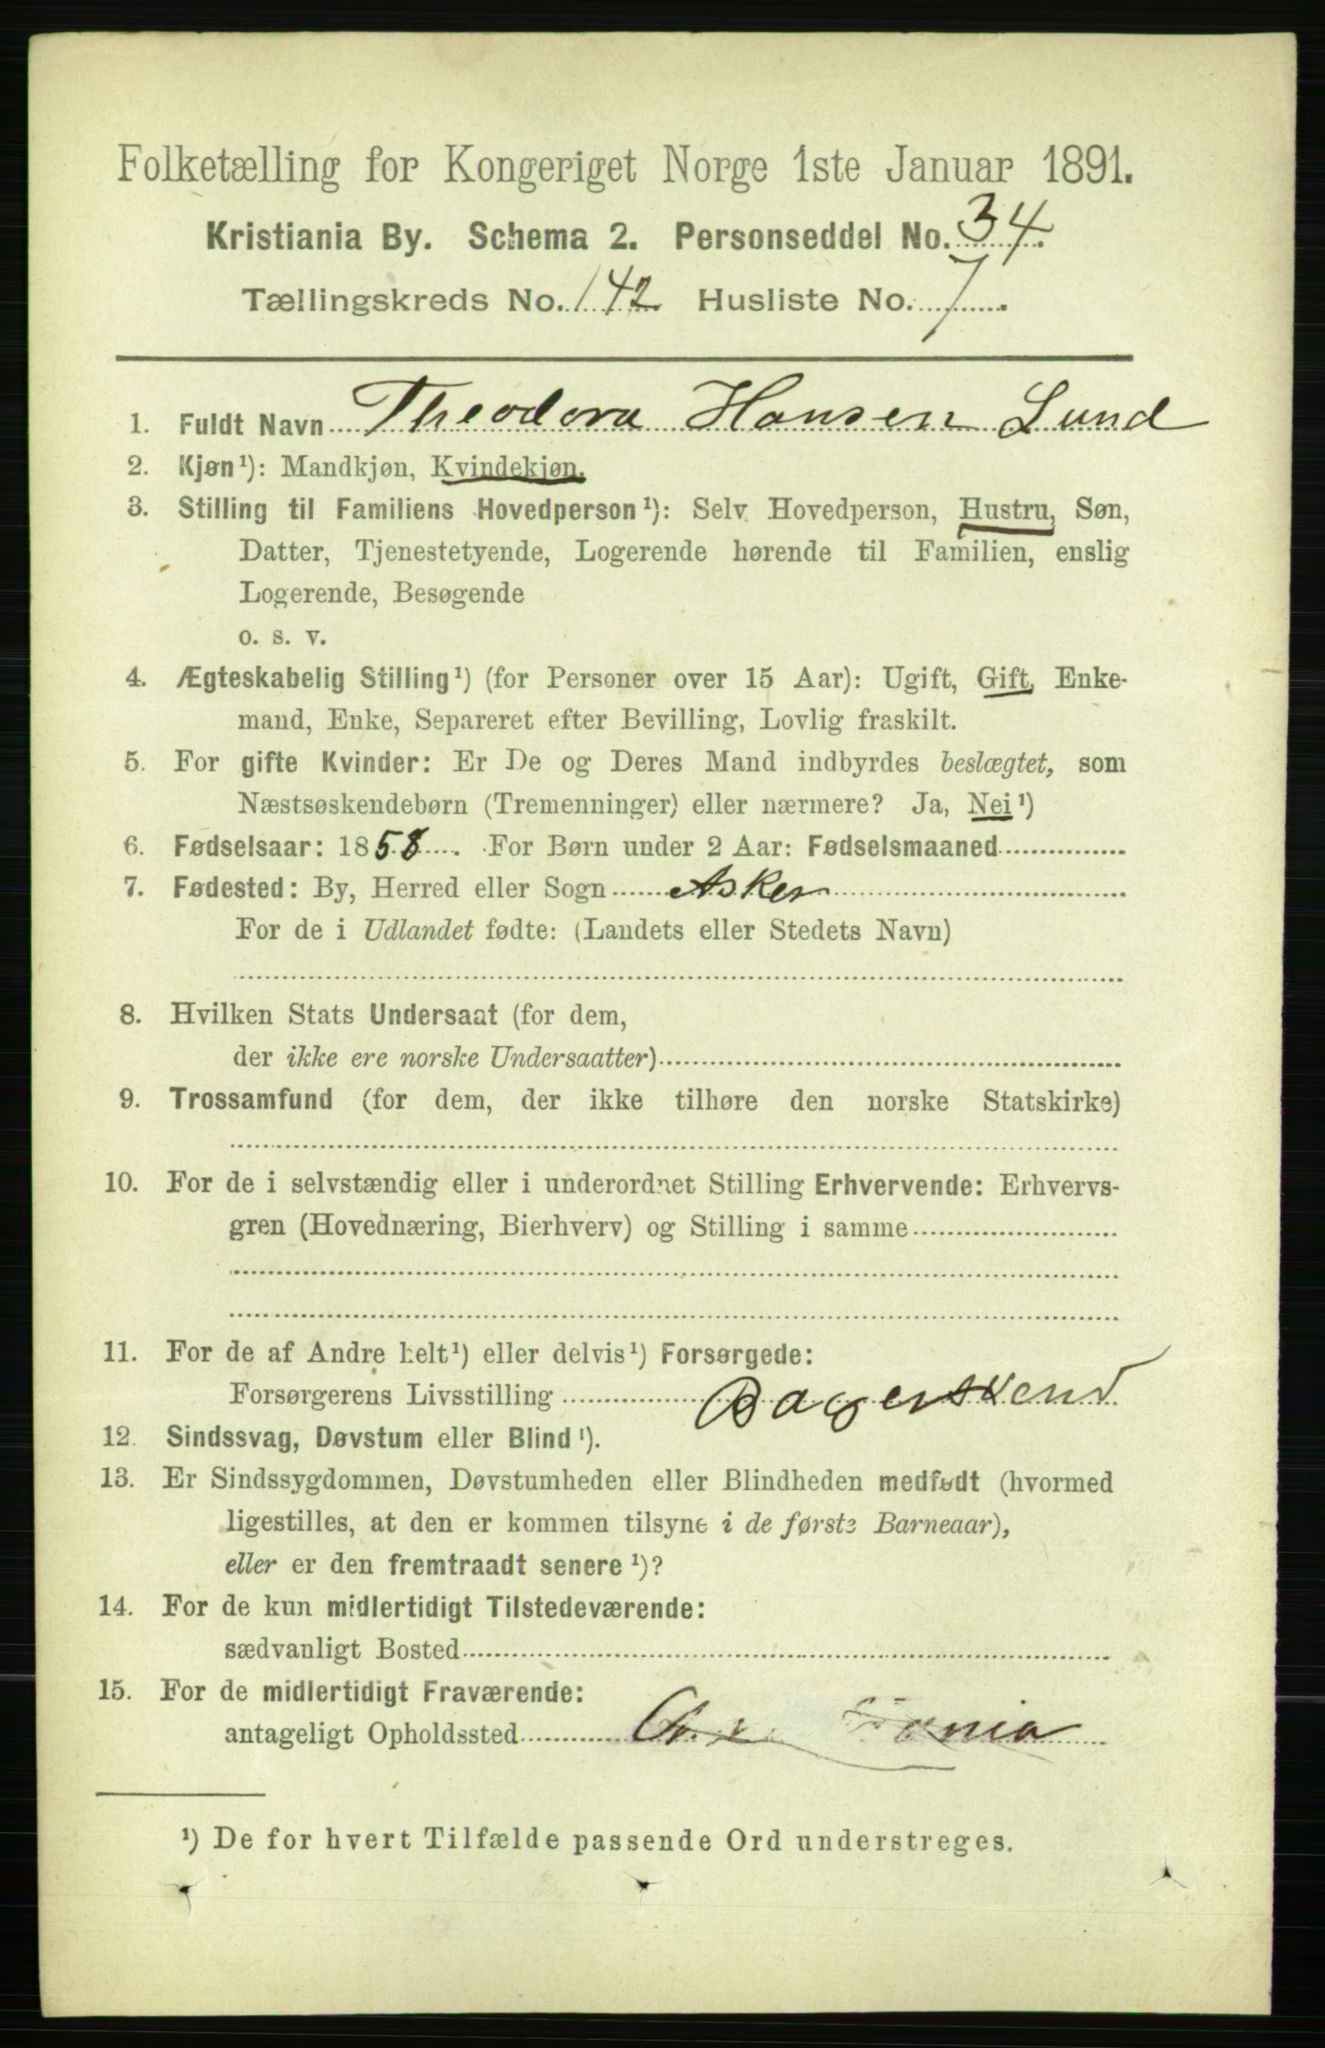 Folketælling for Kongeriget Norge 1ste Januar 1891.
Kristiania By. Schema 2. Personseddel No. 34.
Tællingskreds No. 142 Husliste No. 7.
1. Fuldt Navn Theodora Hansen Lund
2. Kjøn¹): Mandkjøn, Kvindekjøn.
3. Stilling til Familiens Hovedperson¹): Selv Hovedperson, Hustru, Søn,
Datter, Tjenestetyende, Logerende hørende til Familien, enslig
Logerende, Besøgende
o. s. v.
4. Ægteskabelig Stilling¹) (for Personer over 15 Aar): Ugift, Gift, Enke-
mand, Enke, Separeret efter Bevilling, Lovlig fraskilt.
5. For gifte Kvinder: Er De og Deres Mand indbyrdes beslægtet, som
Næstsøskendebørn (Tremenninger) eller nærmere? Ja, Nei¹)
6. Fødselsaar: 1858. For Børn under 2 Aar: Fødselsmaaned
7. Fødested: By, Herred eller Sogn Asker
For de i Udlandet fødte: (Landets eller Stedets Navn)
8. Hvilken Stats Undersaat (for dem,
der ikke ere norske Undersaatter)
9. Trossamfund (for dem, der ikke tilhøre den norske Statskirke)
10. For de i selvstændig eller i underordnet Stilling Erhvervende: Erhvervs-
gren (Hovednæring, Bierhverv) og Stilling i samme
11. For de af Andre helt¹) eller delvis¹) Forsørgede:
Forsørgerens Livsstilling Bagersvend
12. Sindssvag, Døvstum eller Blind¹).
13. Er Sindssygdommen, Døvstumheden eller Blindheden medfødt (hvormed
ligestilles, at den er kommen tilsyne i de første Barneaar),
eller er den fremtraadt senere¹)?
14. For de kun midlertidigt Tilstedeværende:
sædvanligt Bosted
15. For de midlertidigt Fraværende:
antageligt Opholdssted
¹) De for hvert Tilfælde passende Ord understreges.